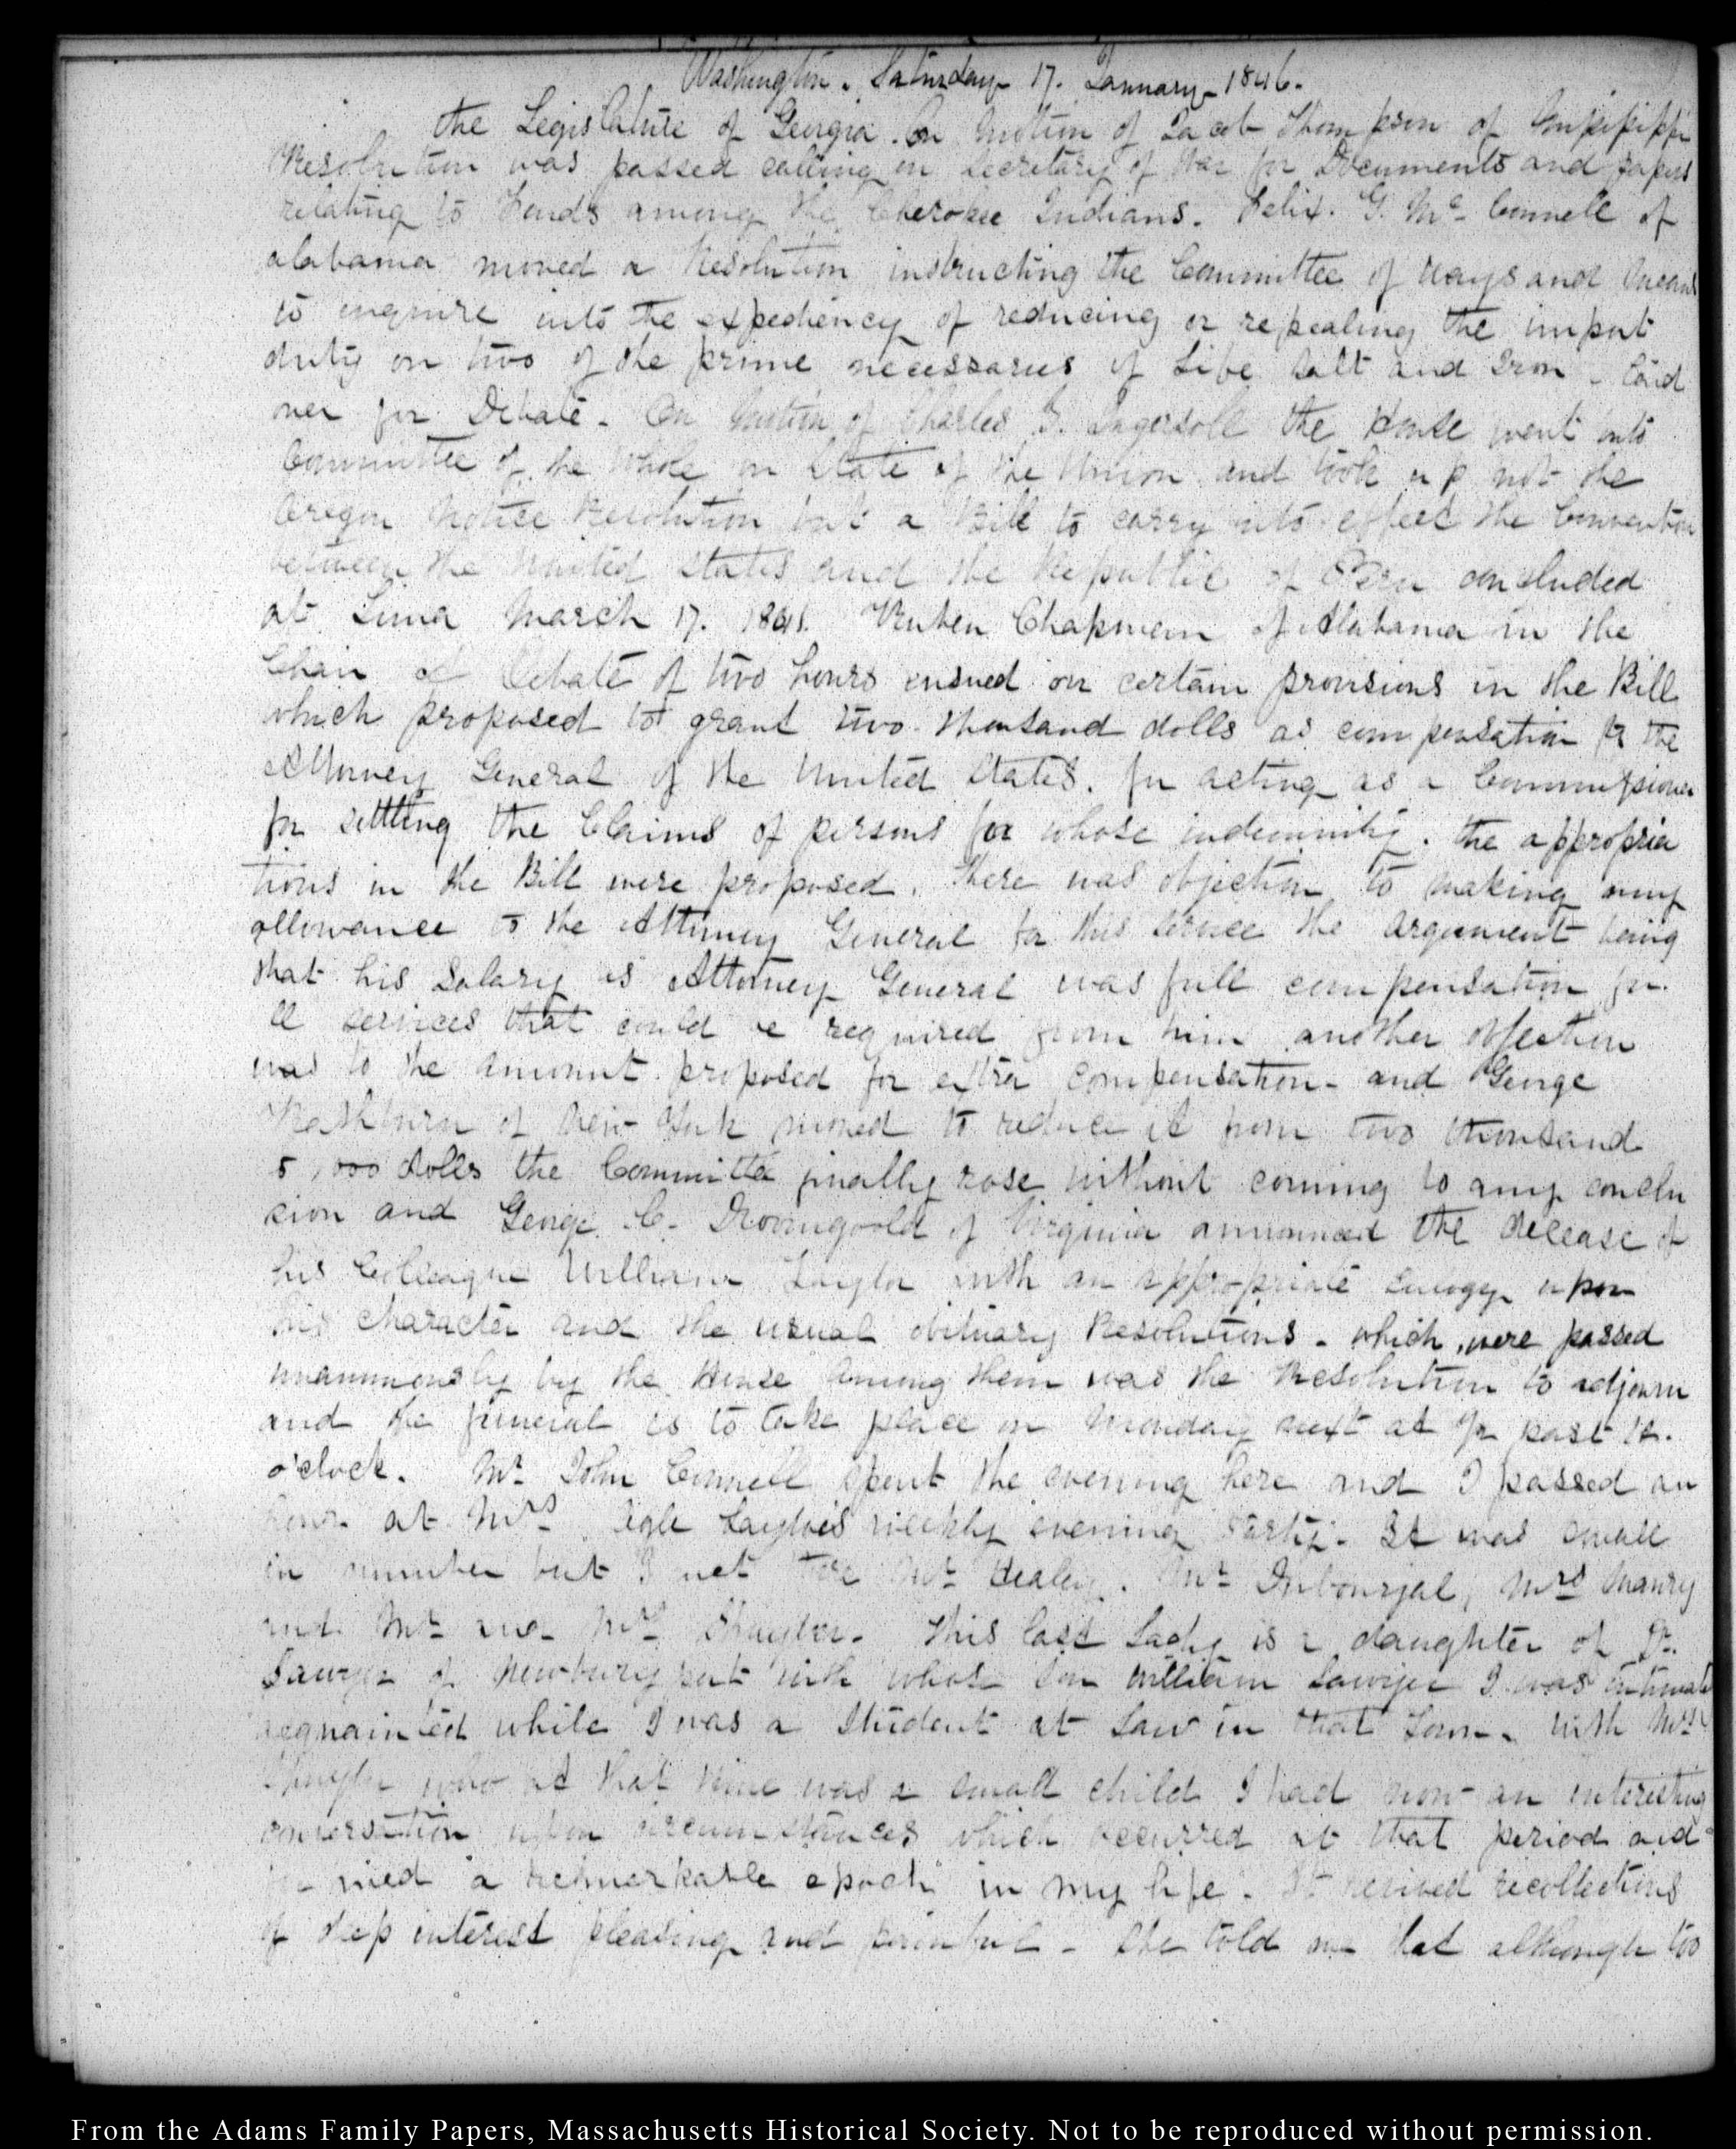 Washington. Saturday 17. January 1846.
the Legislature of Georgia. On motion of Jacob Thompson of Missisippi
Resolution was passed calling on Secretary of War for Documents and papers
relating to Feuds among the Cherokee Indians. Felix. G. Mc. Connell of
alabama moved a Resolution instructing the Committee of ways and means
to enquire into the expediency of reducing or repealing the import
duty on two of the prime necessaries of Life Salt and Iron - laid
over for Debate. On motion of Charles J. Ingersoll the House went into
Committee of the Whole on State of the Union and took up not the
Oregon Notice Resolution but a Bill to carry into effect the Convention
between the United States and the Republic of Peru concluded
at Lima March 17. 1841. Reuben Chapman of Alabama in the
Chair a Debate of two hours ensued on certain provisions in the Bill
which proposed to grant two thousand dolls as compensation to the
Attorney General of the United States. for acting as a Commissioner
for settling the Claims of persons for whose indemnity. the appropria
tions in the Bill were proposed. There was objection to making any
allowance to the Attorney General for this service the argument being
that his Salary as Attorney General was full compensation for
ll services that could be required from him another objection
was to the amount proposed for extra compensation - and George
Rathburn of New York moved to reduce it from two thousand
to 1,000 dolls the Committee finally rose without coming to any conclu
sion and George C. Dromgoold of Virginia announced the decease of
his Colleague William Taylor with an appropriate Eulogy upon
his character and the usual obituary Resolutions - which were passed
unanimously by the House among them was the Resolution to adjourn
and the funeral is to take place on Monday next at 1/2 past 12.
o'clock. Mr. John Connell spent the evening here and I passed an
hour at Mrs. Ogle Tayloe's weekly evening Party. It was small
in number but I met there Mr. Healey. Mr. Dubourjal, Mrs Maury
and Mr. and Mrs. Thayler. This last Lady is a daughter of Dr.
Sawyer of Newburyport with whose son William Sawyer I was intimate
acquainted while I was a Student at Law in that Town. With Mrs.
who at that time was a small child I had now an interesting
conversation upon circumstances which occurred at that period and
formed a remarkable epoch in my life. It revived recollections
of deep interest pleasing and painful - She told me that although too
From the Adams Family Papers, Massachusetts Historical Society. Not to be reproduced without permission.